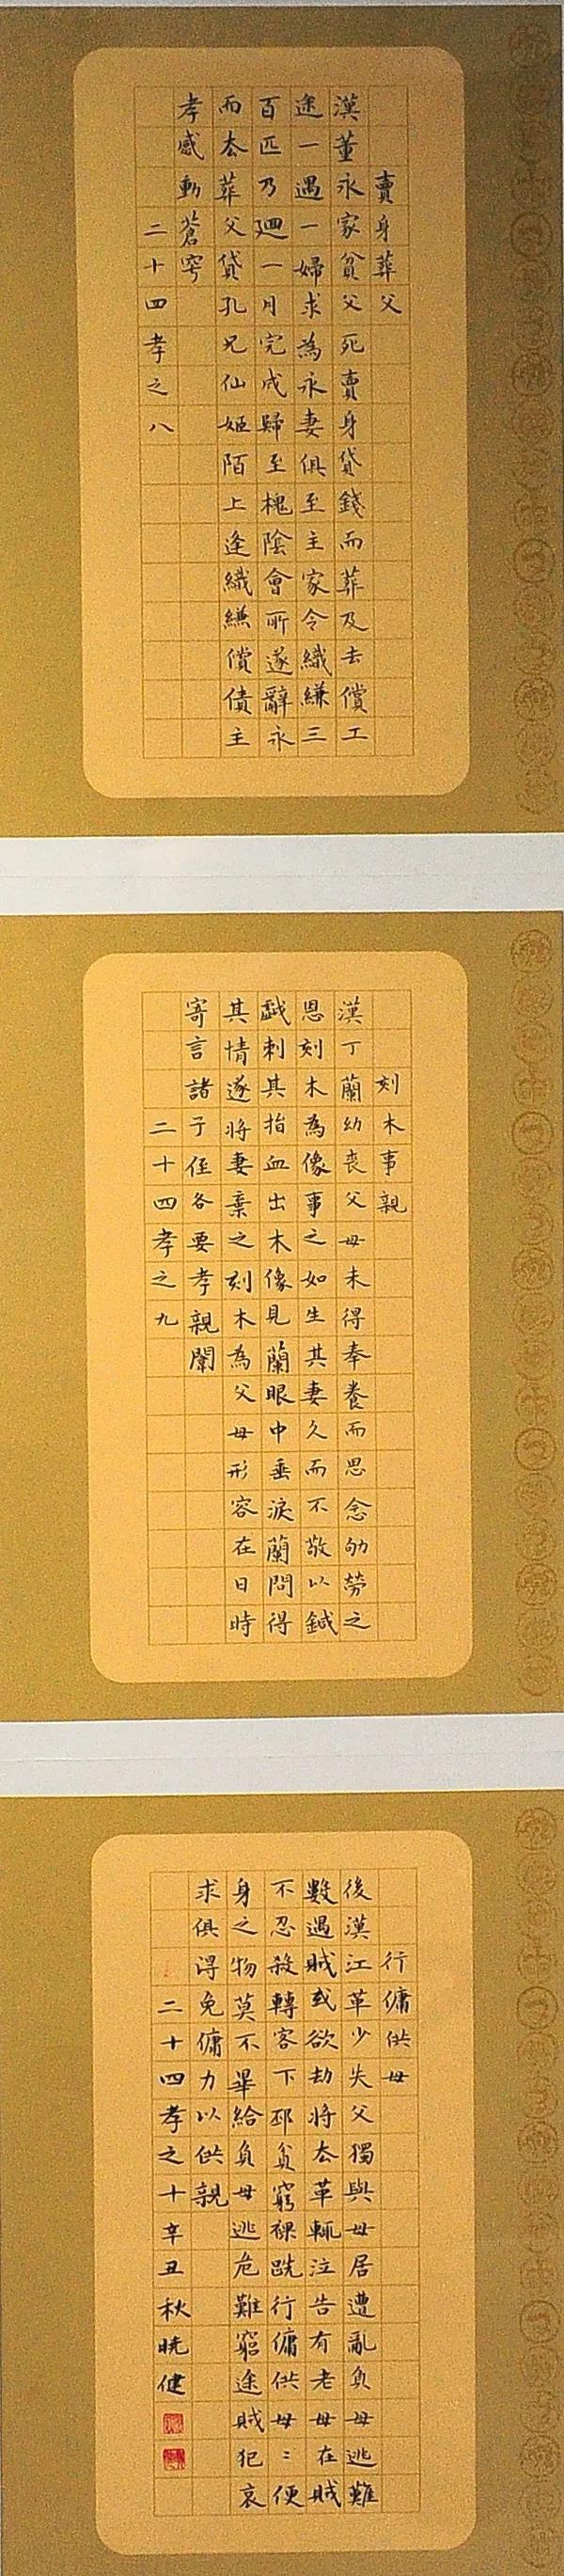 賣身葬父
漢董永家貧父死賣身貸錢而葬及去償工
途一遇一婦求為永妻俱至主家令織縑三
百匹乃迴一月完成歸至槐陰會所遂辭永
而厺葬父貸孔兄仙姬陌上逢織縑償債主
孝感動蒼穹
二十四孝之八
刻木事親
漢丁蘭幼喪父母未得奉養而思念劬勞之
恩刻木為像事之如生其妻久而不敬以鍼
戯刺其指血出木像見蘭眼中垂淚蘭問得
其情遂将妻棄之刻木為父母形容在日時
寄言諸子侄各要孝親闈
二十四孝之九
行傭供母
後漢江革少失父獨與母居遭亂負母逃難
數遇賊或欲劫將厺革輒泣告有老母在賊
不忍殺轉客下邳貧窮裸跣行傭供母〻便
身之物莫不畢給負母逃危難窮途賊犯哀
求俱得免傭力以供親
二十四孝之十辛丑秋曉健